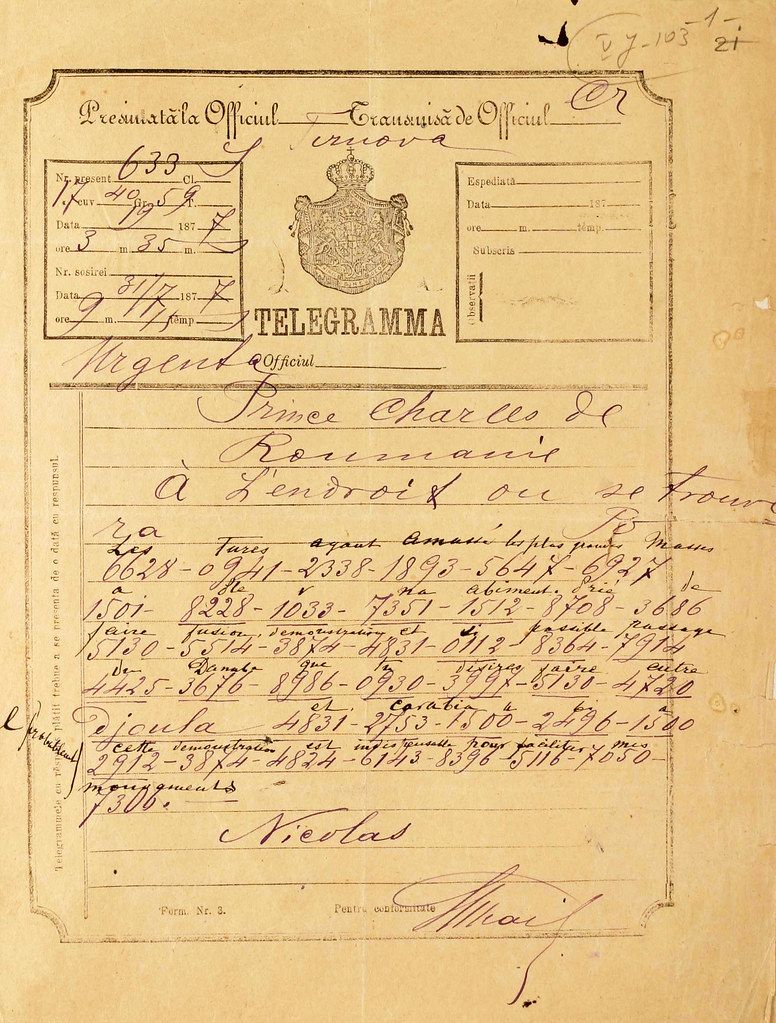 V J-103 -1-
21
Presintată la Officiul Transmisă de Officiul Cr
Tirnova
Nr. present 633 Cl.
17 cuv 40 Gro 59 T.
Data 19 187 7
ore 3 m 35 m.
Nr. sosirei
Data 31/7 187 7
ore 9 m. 15 temp.
TELEGRAMMA
Espediată
Data 187
ore m. temp.
Subscris
Observații
Urgenta Officiul
Prince Charles de
Roumanie
à L'endroit ou se trouve
ra
Les Turcs ayant amassé les plus grandes Masses
6628-0941-2338-1893-5647-6927
a Ple v na abiment. Prié de
1501-8228-1033-7351-1512-8708-3686
faire fusion, demonstration et si possible passage
5130-5514-3874-4831-0112-8364-7914
du Danube que tu désiras faire entre
4425-3676-8986-0930-3997-5130-4720
et Corabia a bi a
Djoula 4831-2753-1500-2496-1500
cette demonstration est indispensable pour faciliter mes
2912-3874-4824-6143-8396-5116-7050-
mouvements
7300.
Nicolas
Form. Nr. 3. Pentru conformitate
Telegrammele cu răspuns plătit trebue a se presenta de o dată cu responsul.